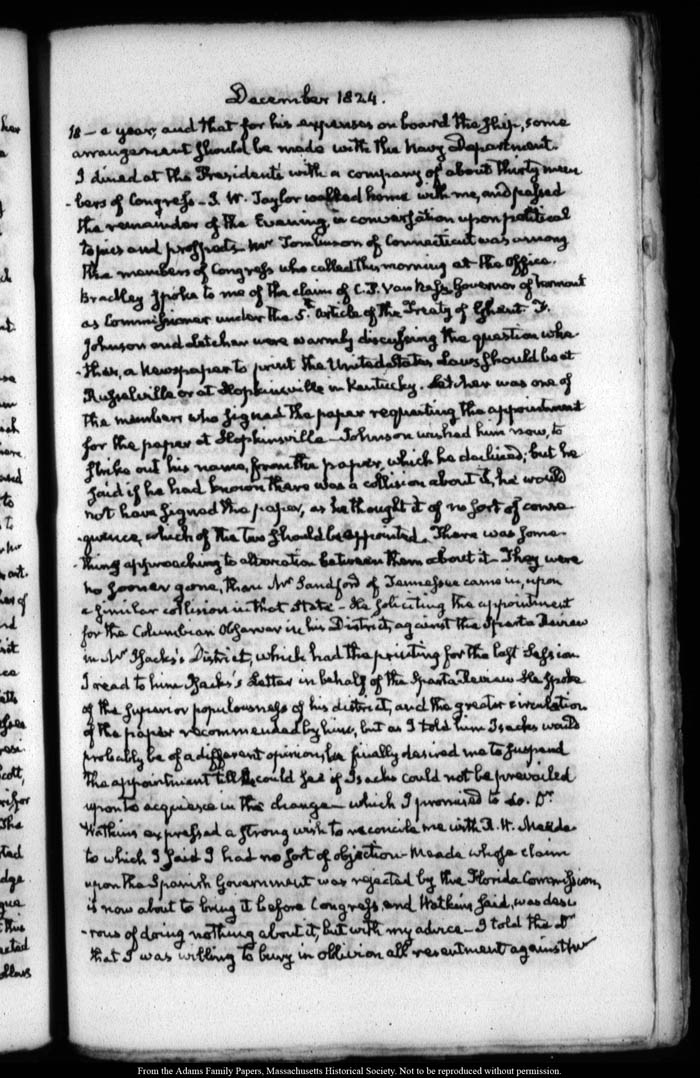 December 1824.
18 — a year, and that for his expenses on board the Ship, some
arrangement should be made with the Navy Department.
I dined at the Presidents with a company of about thirty mem
-bers of Congress — J. W. Taylor walked home with me, and passed
the remainder of the Evening in conversation upon political
topics and prospects. Mr Tomlinson of Connecticut was among
the members of Congress who called this morning at the Office.
Bradley spoke to me of the claim of C. P. Van Ness Governor of Vermont
as Commissioner under the 5th. Article of the Treaty of Ghent. F.
Johnson and Letcher were warmly discussing the question whe
-ther, a Newspaper to print the United States Laws should be at
Russelville or at Hopkinsville in Kentucky. Letcher was one of
the members who signed the paper requesting the appointment
for the paper at Hopkinsville — Johnson wished him now, to
strike out his name, from the paper, which he declined; but he
said if he had known there was a collision about it, he would
not have signed the paper, as he thought it of no sort of conse
-quence, which of the two should be appointed. There was some-
-thing approaching to altercation between them about it — They were
no sooner gone, than Mr Sandford of Tennessee came in, upon
a similar collision in that State — He soliciting the appointment
for the Columbian Observer in his District, against the Sparta Review
in Mr Isacks's District, which had the printing for the last Session
I read to him Isacks's Letter in behalf of the Sparta Review. He spoke
of the superior populousness of his district, and the greater circulation
of the paper recommended by him, but as I told him Isacks would
probably be of a different opinion, he finally desired me to suspend
the appointment till he could see if Isacks could not be prevailed
upon to acquiesce in the change — which I promised to do. Dr.
Watkins expressed a strong wish to reconcile me with R. W. Meade
to which I said I had no sort of objection — Meade whose claim
upon the Spanish Government was rejected by the Florida Commission,
is now about to bring it before Congress, and Watkins said, was desi
-rous of doing nothing about it, but with my advice — I told the Dr
that I was willing to bury in oblivion all resentment against Mr
From the Adams Family Papers, Massachusetts Historical Society. Not to be reproduced without permission.